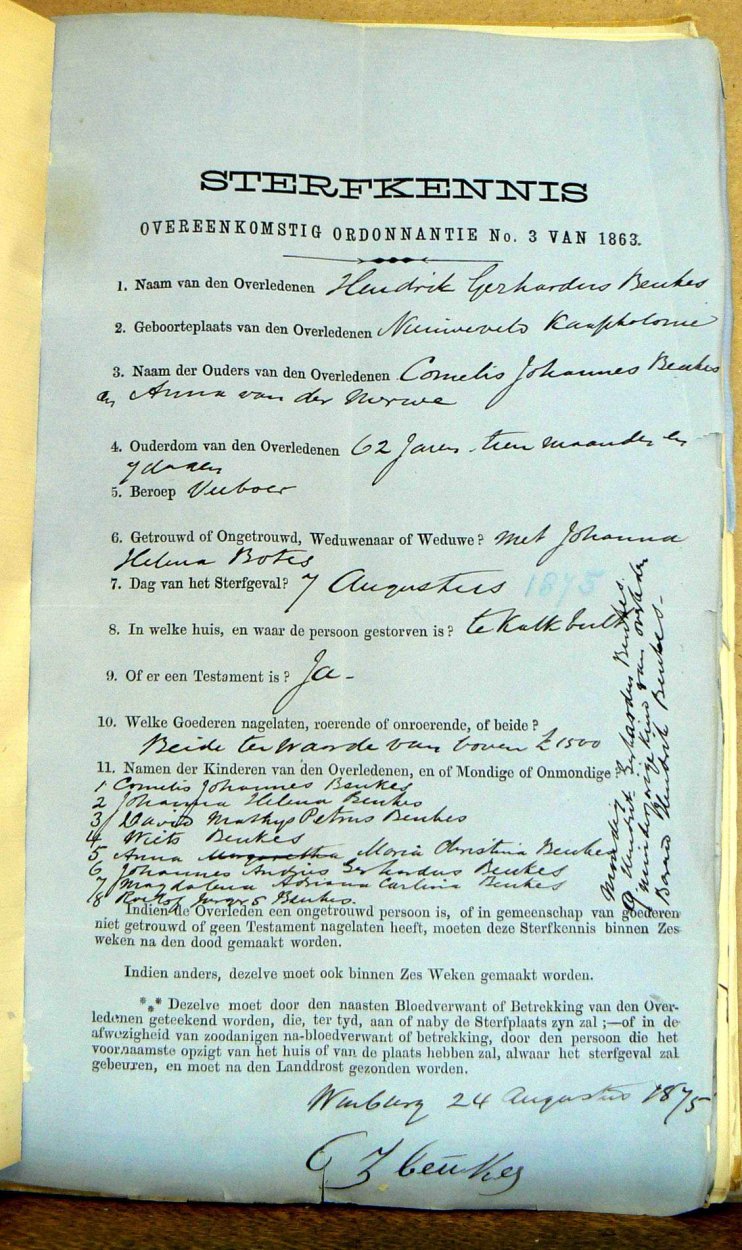 STERFKENNIS
OVEREENKOMSTIG ORDONNANTIE No. 3 VAN 1863.
1. Naam van den Overledenen Hendrik Gerhardus Beukes
2. Geboorteplaats van den Overledenen Nieuweveld Kaapkolonie
3. Naam der Ouders van den Overledenen Cornelis Johannes Beukes
en Anna van der Merwe
4. Ouderdom van den Overledenen 62 Jaren tien maanden en
7 dagen
5. Beroep Veeboer
6. Getrouwd of Ongetrouwd, Weduwenaar of Weduwe? met Johanna
Helena Botes
7. Dag van het Sterfgeval? 7 Augustus 1875
8. In welke huis, en waar de persoon gestorven is? te Kalkbult
9. Of er een Testament is? Ja -
10. Welke Goederen nagelaten, roerende of onroerende, of beide?
Beide ter waarde van boven £1500
11. Namen der Kinderen van den Overledenen, en of Mondige of Onmondige?
1 Cornelis Johannes Beukes
2 Johanna Helena Beukes
3 David Mathys Petrus Beukes
4 Wiets Beukes
5 Anna Margaretha Maria Christina Beukes
6 Johannes Andries Gerhardus Beukes
7 Magdalena Adriana Carlina Beukes
8 Roelof Beukes.
Mondig
9 Hendrik Gerhardus Beukes.
minderjarige kind van overleden
Barend Hendrik Beukes -
Indien de Overleden een ongetrouwd persoon is, of in gemeenschap van goederen
niet getrouwd of geen Testament nagelaten heeft, moeten deze Sterfkennis binnen Zes
weken na den dood gemaakt worden.
Indien anders, dezelve moet ook binnen Zes Weken gemaakt worden.
*** Dezelve moet door den naasten Bloedverwant of Betrekking van den Over-
ledenen geteekend worden, die, ter tyd, aan of naby de Sterfplaats zyn zal;—of in de
afwezigheid van zoodanigen na-bloedverwant of betrekking, door den persoon die het
voornaamste opzigt van het huis of van de plaats hebben zal, alwaar het sterfgeval zal
gebeuren, en moet na den Landdrost gezonden worden.
Winburg 24 Augustus 1875
C J Beukes